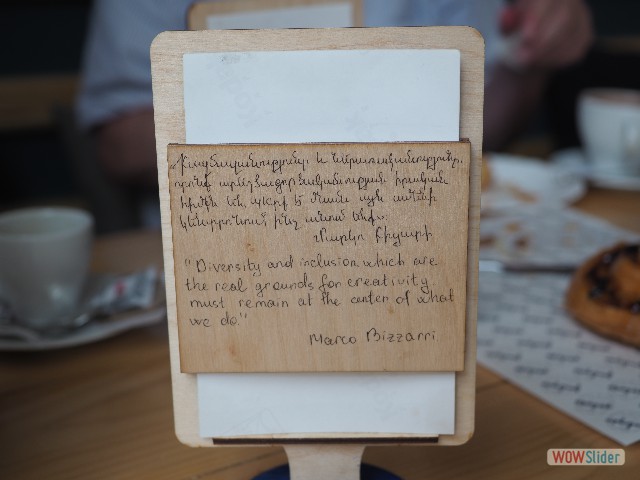 «Բազմազանությունը և ներառականությունը,
որոնք ստեղծագործականության իրական
հիմքն են, պետք է մնան այն ամենի
կենտրոնում, ինչ անում ենք»
Մարկո
"Diversity and inclusion which are
the real grounds for creativity
must remain at the center of what
we do."
Marco Bizzarri
WOWSlider